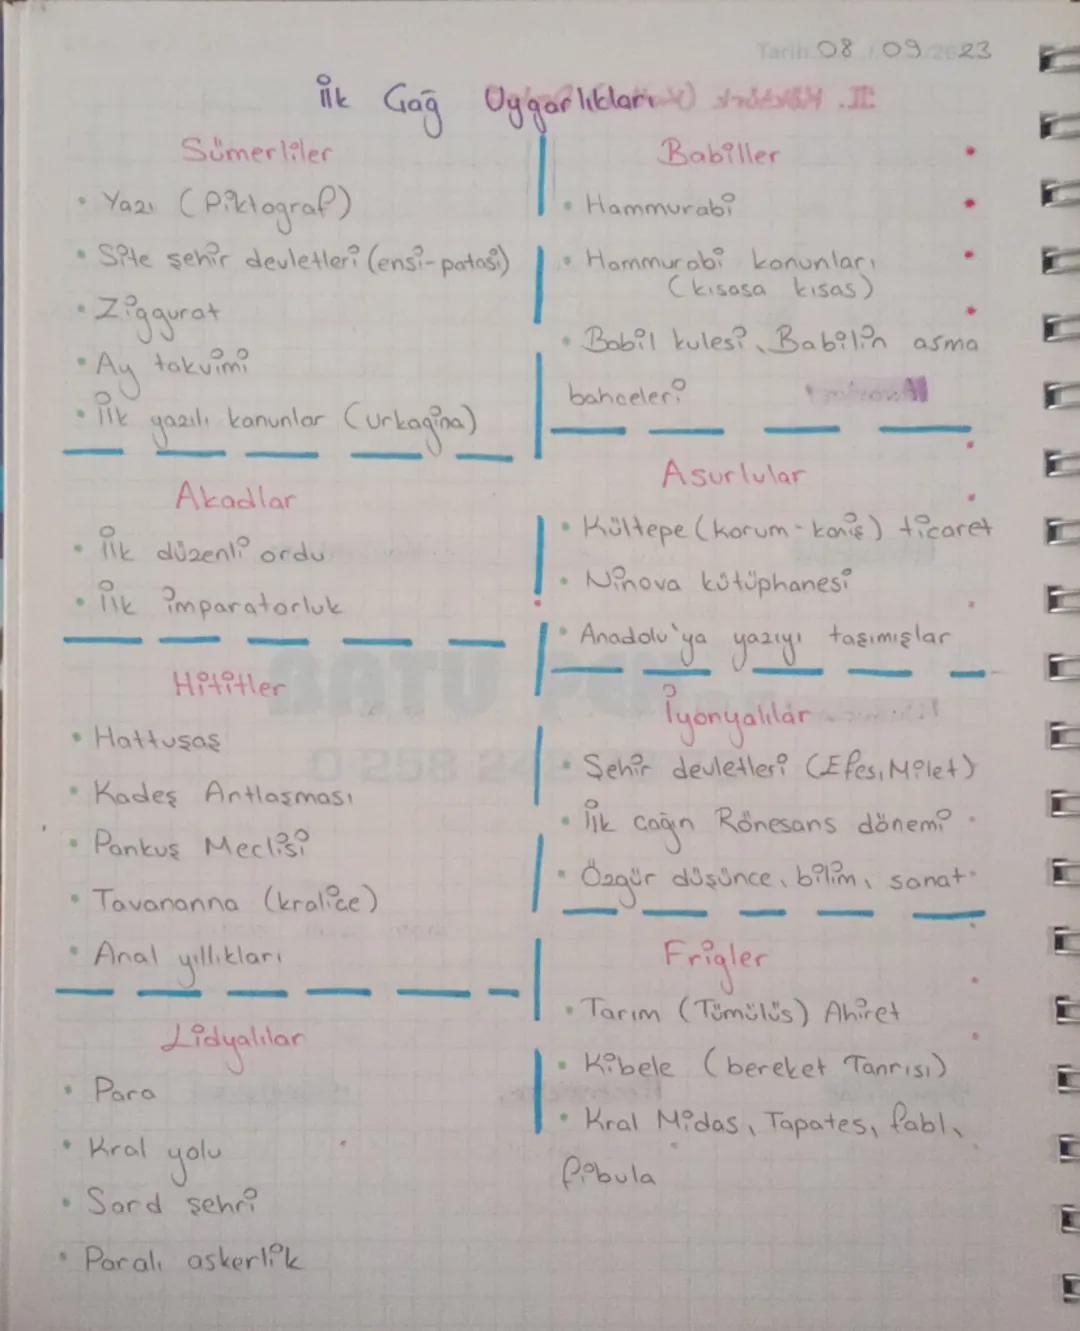 Tarih 08 / 09 / 2023
İlk Çağ Uygarlıkları
Sümerliler
• Yazı (Piktograf)
• Site şehir devletleri (ensi-patasi)
• Ziggurat
• Ay takvimi
• İlk yazılı kanunlar (urkagina)
Akadlar
• İlk düzenli ordu
• İlk imparatorluk
Hititler
• Hattuşaş
• Kadeş Antlaşması
• Pankuş Meclisi
• Tavananna (kraliçe)
• Anal yıllıkları
Lidyalılar
• Para
• Kral yolu
• Sard şehri
• Paralı askerlik
Babiller
• Hammurabi
• Hammurabi kanunları
(kısasa kısas)
• Babil kulesi, Babilin asma
bahceleri
Asurlular
• Kültepe (korum-kaniş) ticaret
• Ninova kütüphanesi
• Anadolu'ya yazıyı taşımışlar
İyonyalılar
• Şehir devletleri (Efes, Milet)
• İlk çağın Rönesans dönemi
• Özgür düşünce, bilim, sanat
Frigler
• Tarım (Tümülüs) Ahiret
• Kibele (bereket Tanrısı)
• Kral Midas, Tapates, fabl,
fibula